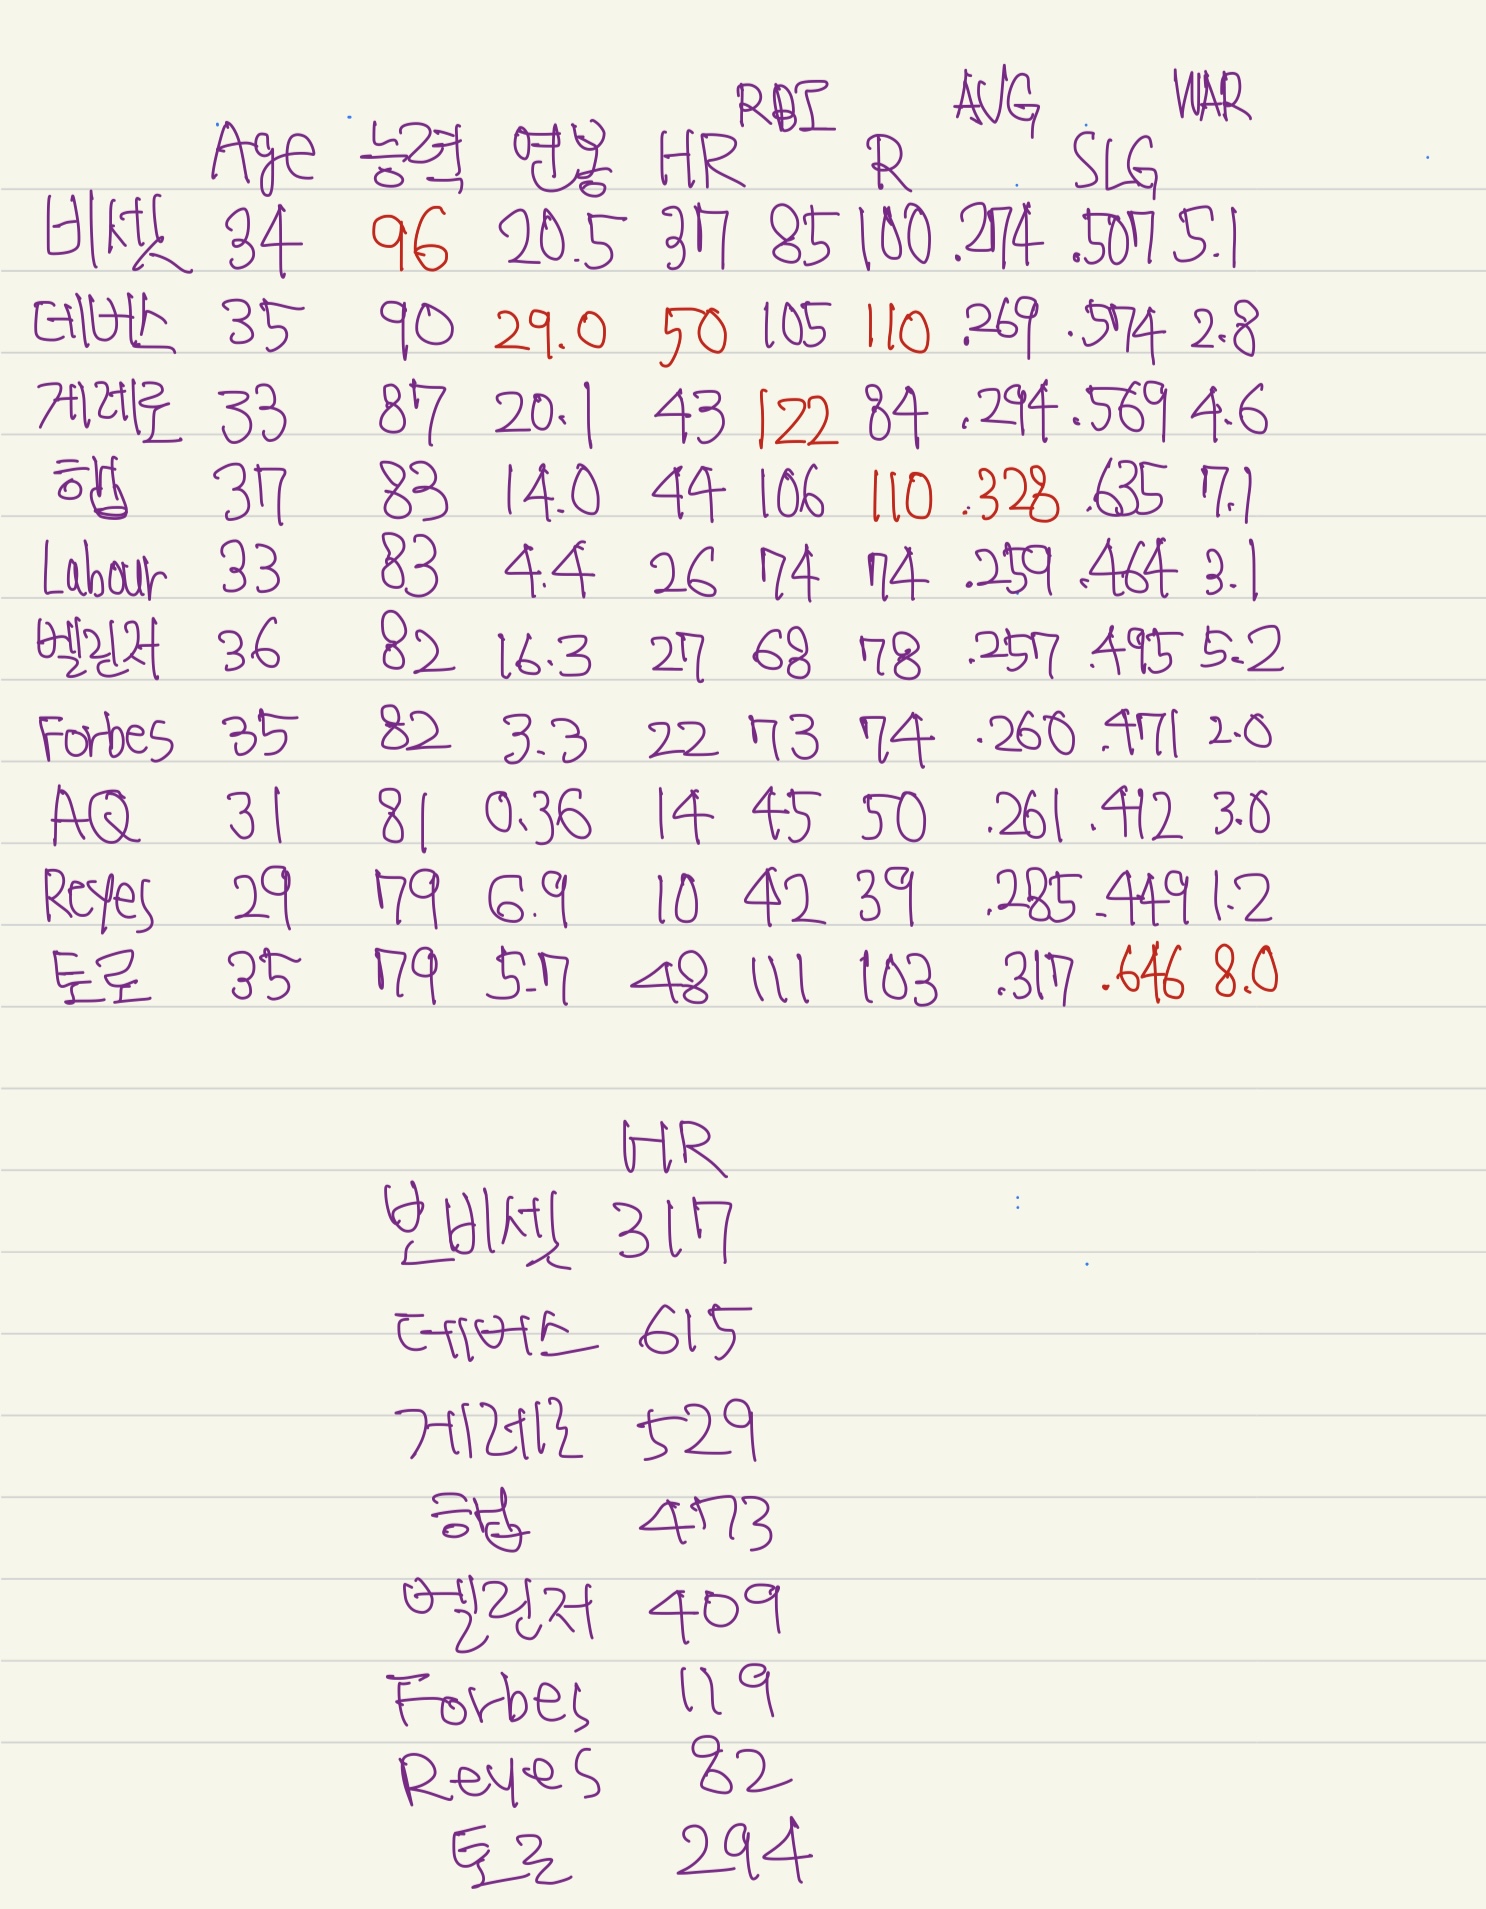 Age 능력 연봉 HR RBI R AVG SLG WAR
비셋 34 96 20.5 37 85 100 .274 .507 5.1
데버스 35 90 29.0 50 105 110 .269 .574 2.8
게레로 33 87 20.1 43 122 84 .294 .569 4.6
흥법 37 83 14.0 44 106 110 .328 .635 7.1
Labour 33 83 4.4 26 74 74 .259 .464 3.1
벨린저 36 82 16.3 27 68 78 .257 .495 5.2
Forbes 35 82 3.3 22 73 74 .260 .471 2.0
AQ 31 81 0.36 14 45 50 .261 .412 3.0
Reyes 29 79 6.9 10 42 39 .285 .449 1.2
토로 35 79 5.7 48 111 103 .317 .646 8.0
HR
본비셋 317
데버스 615
게레로 529
흥법 473
벨린저 409
Forbes 119
Reyes 82
토로 294